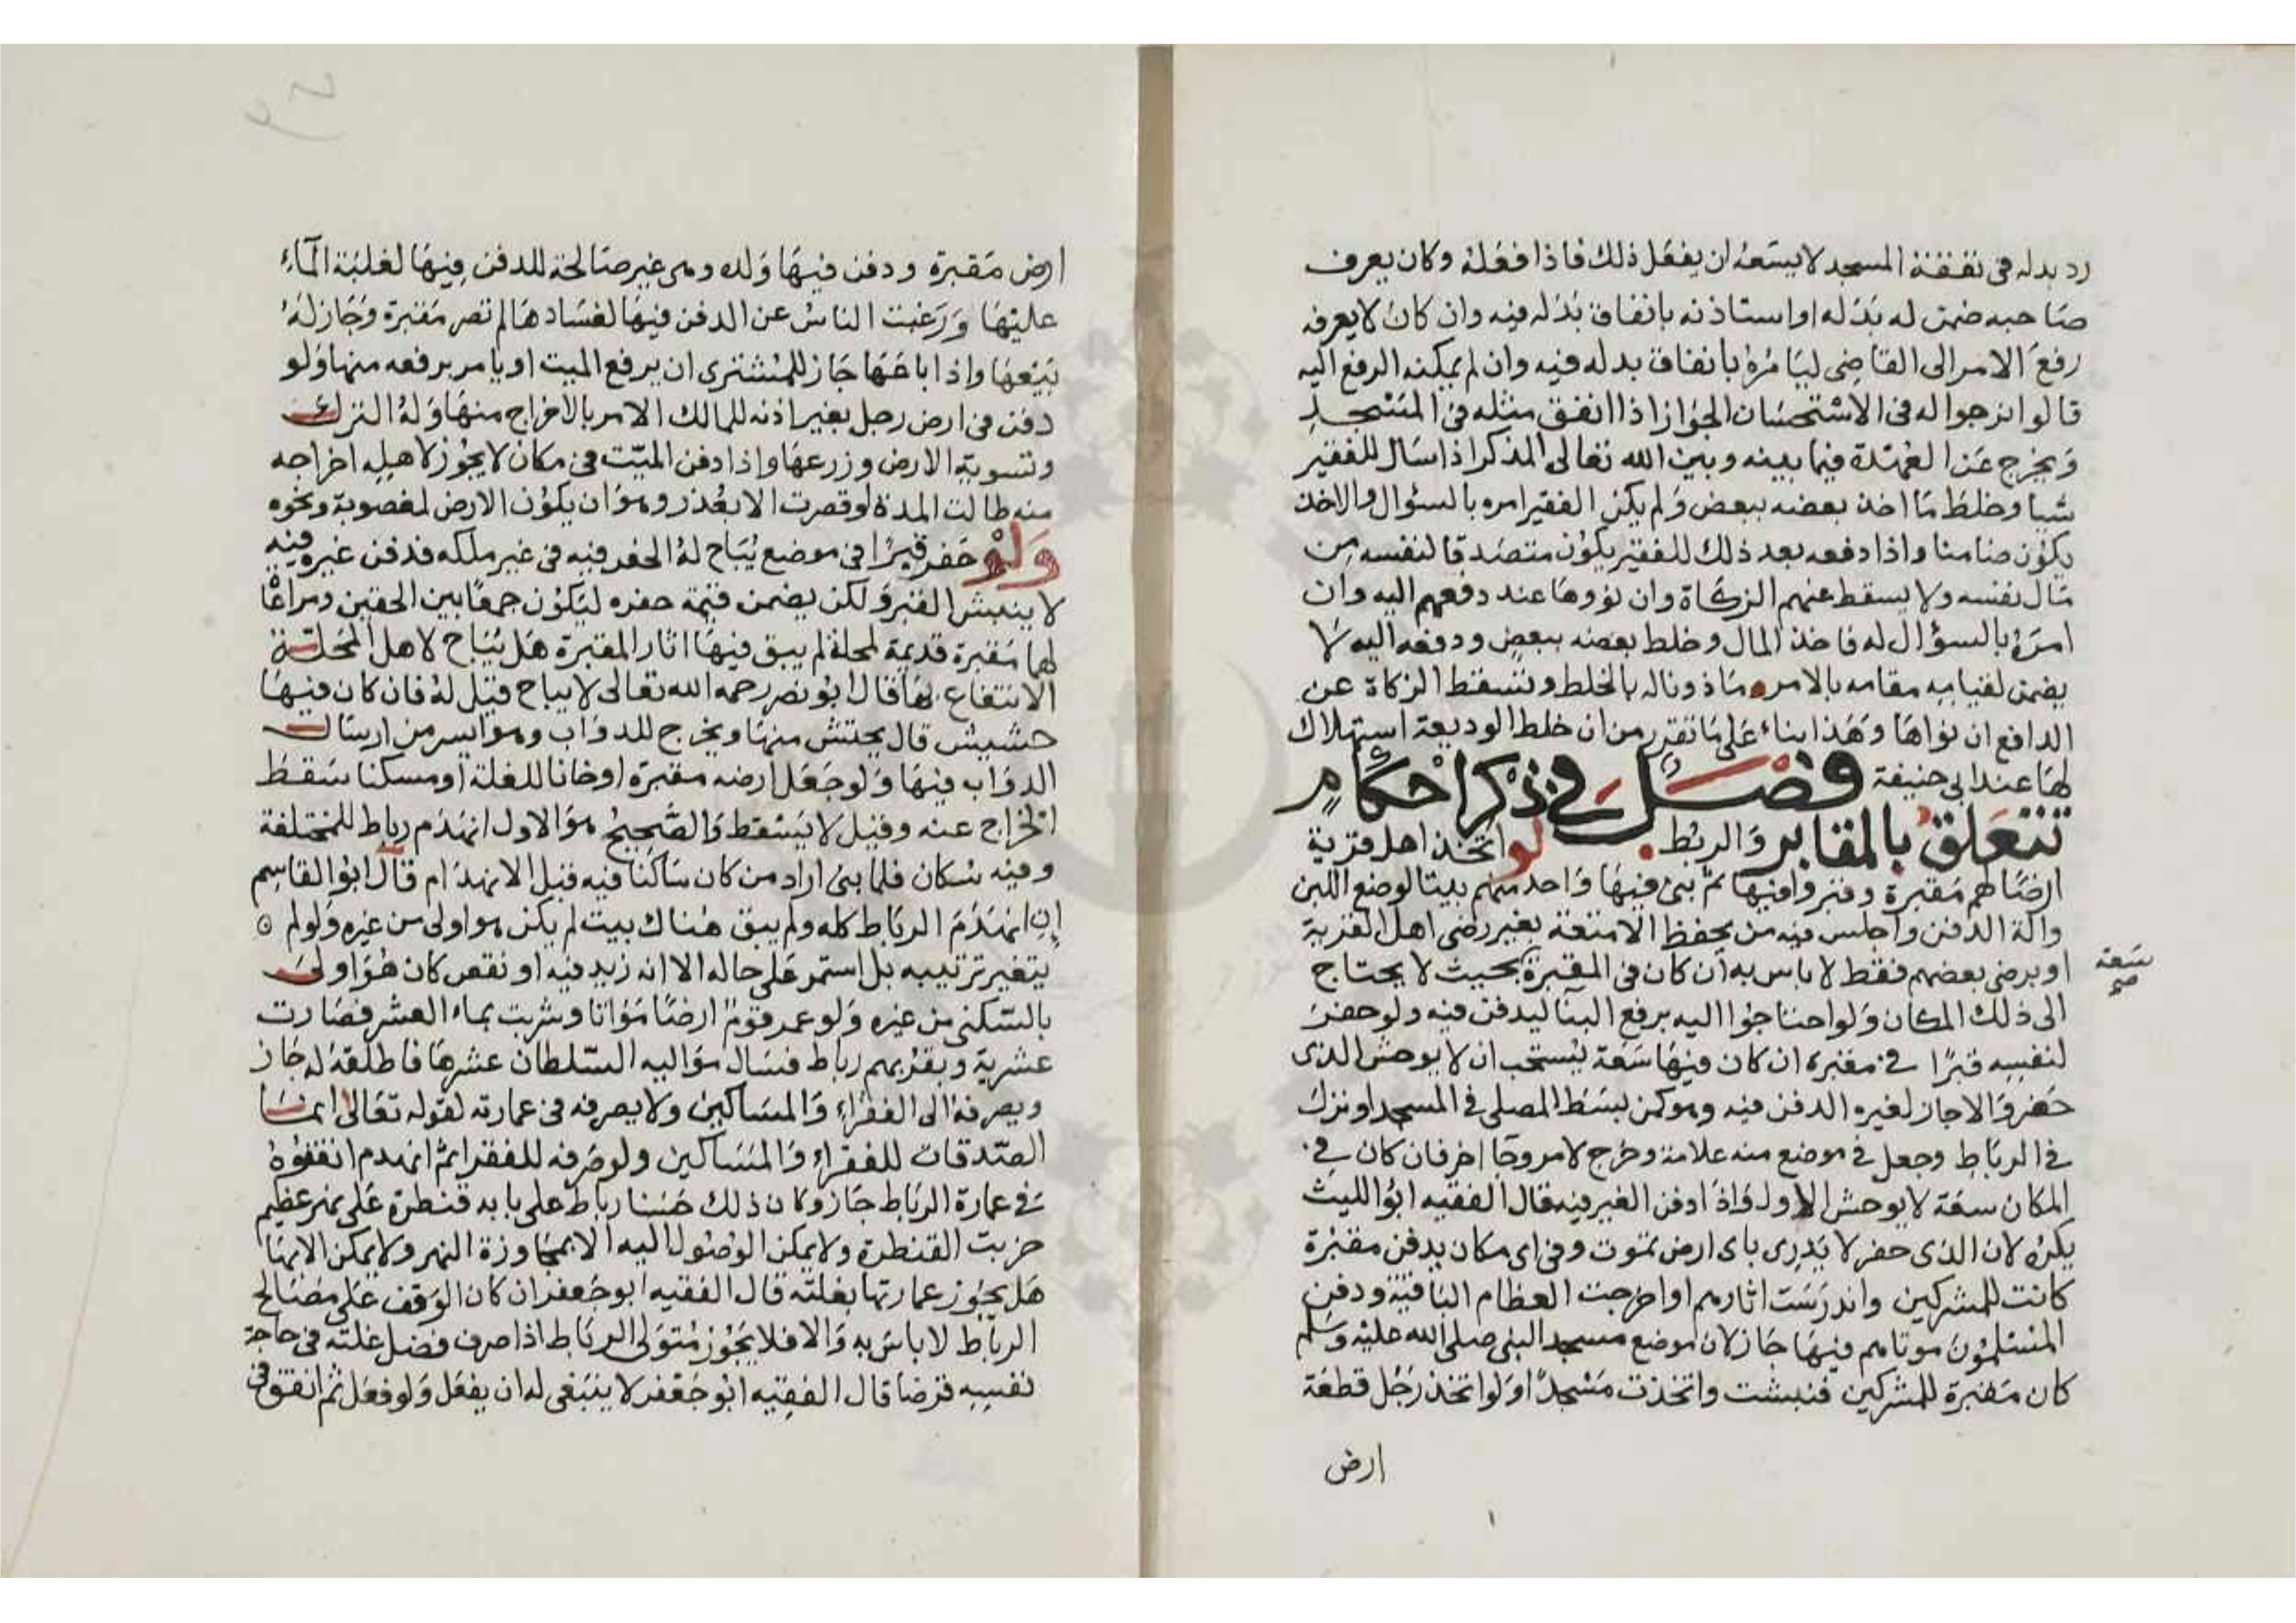 رد بدله في نفقة المسجد لا يسعه ان يفعل ذلك فاذا فعله وكان يعرف
صاحبه ضمن له بدله او استاذنه بانفاق بدله فيه وان كان لا يعرفه
رفع الامر الى القاضي ليامره بانفاق بدله فيه وان لم يمكنه الرفع اليه
قالوا نرجوا له في الاستحسان الجواز اذا انفق مثله في المسجد
ويخرج عن العهدة فيما بينه وبين الله تعالى المذكر اذا سال للفقير
شيا وخلط ما اخذ بعضه ببعض ولم يكن الفقير امره بالسؤال والاخذ
يكون ضامنا واذا دفعه بعد ذلك للفقير يكون متصدقا لنفسه من
مال نفسه ولا يسقط عنهم الزكاة وان نووها عند دفعهم اليه وان
امره بالسؤال له فاخذ المال وخلط بعضه ببعض ودفعه اليه لا
يضمن لقيامه مقامه بالامر ماذونا له بالخلط وتسقط الزكاة عن
الدافع ان نواها وهذا بناء على ما تقرر من ان خلط الوديعة استهلاك
لها عند ابي حنيفة فصل في ذكر احكام
تتعلق بالمقابر والربط لو اتخذ اهل قرية
ارضا لهم مقبرة وقبروا فيها ثم بنى فيها واحد منهم بيتا لوضع اللبن
والة الدفن واجلس فيه من يحفظ الامتعة بغير رضى اهل القرية
او برضى بعضهم فقط لا باس به ان كان في المقبرة بحيث لا يحتاج
سعة صح
الى ذلك المكان ولو احتاجوا اليه يرفع البنا ليدفن فيه ولو حضر
لنفسه قبرا في مقبرة ان كان فيها سعة يستحب ان لا يوحش الذي
حفر والا جاز لغيره الدفن فيه وهو كمن بسط المصلى في المسجد او نزل
في الرباط وجعل في موضع منه علامة وخرج لامر وجا اخر فان كان في
المكان سعة لا يوحش الاول واذا دفن الغير فيه قال الفقيه ابو الليث
يكره لان الذي حفر لا يدري باى ارض يموت وفي اى مكان يدفن مقبرة
كانت للمشركين واندرست اثارهم او اخرجت العظام الباقية ودفن
المسلمون موتاهم فيها جاز لان موضع مسجد النبي صلى الله عليه وسلم
كان مقبرة للمشركين فنبشت واتخذت مسجدا ولو اتخذ رجل قطعة
ارض
ارض مقبرة ودفن فيها ولده وهي غير صالحة للدفن فيها لغلبة الماء
عليها ورغبت الناس عن الدفن فيها لفسادها لم تصر مقبرة وجاز له
بيعها واذا باعها جاز للمشترى ان يرفع الميت او يامر برفعه منها ولو
دفن في ارض رجل بغير اذنه للمالك الامر بالاخراج منها وله الترك
وتسوية الارض وزرعها واذا دفن الميت في مكان لا يجوز لاهله اخراجه
منه طالت المدة او قصرت الا بعذر وهو ان يكون الارض لمغصوبة ونحوه
ولو حفر قبرا في موضع يباح له الحفر فيه في غير ملكه فدفن غيره فيه
لا ينبش القبر ولكن يضمن قيمة حفره ليكون جمعا بين الحقين ومراعا
لها مقبرة قديمة لمحلة لم يبق فيها اثار المقبرة هل يباح لاهل المحلة
الانتفاع بها قال ابو نصر رحمه الله تعالى لا يباح قيل له فان كان فيها
حشيش قال يحتش منها ويخرج للدواب وهو ايسر من ارسال
الدواب فيها ولو جعل ارضه مقبرة او خانا للغلة او مسكنا سقط
الخراج عنه وقيل لا يسقط والصحيح هو الاول انهدم رباط للمختلفة
وفيه سكان فلما بنى اراد من كان ساكنا فيه قبل الانهدام قال ابو القاسم
ان انهدم الرباط كله ولم يبق هناك بيت لم يكن هو اولى من غيره ولو لم
يتغير ترتيبه بل استمر على حاله الا انه زيد فيه او نقص كان هو اولى
بالسكنى من غيره ولو عمر قوم ارضا مواتا وشربت بماء العشر فصارت
عشرية وبقربهم رباط فسال مواليه السلطان عشرها فاطلقه له جاز
ويصرفه الى الفقراء والمساكين ولا يصرفه في عمارته لقوله تعالى انما
الصدقات للفقراء والمساكين ولو صرفه للفقرا ثم انهدم انفقوه
في عمارة الرباط جاز وكان ذلك حسنا رباط على بابه قنطرة على نهر عظيم
خربت القنطرة ولا يمكن الوصول اليه الا بمجاوزة النهر ولا يمكن الا بها
هل يجوز عمارتها بغلته قال الفقيه ابو جعفر ان كان الوقف على مصالح
الرباط لا باس به والا فلا يجوز متولى الرباط اذا صرف فضل غلته في حاجة
نفسه قرضا قال الفقيه ابو جعفر لا ينبغي له ان يفعل ولو فعل ثم انفق في